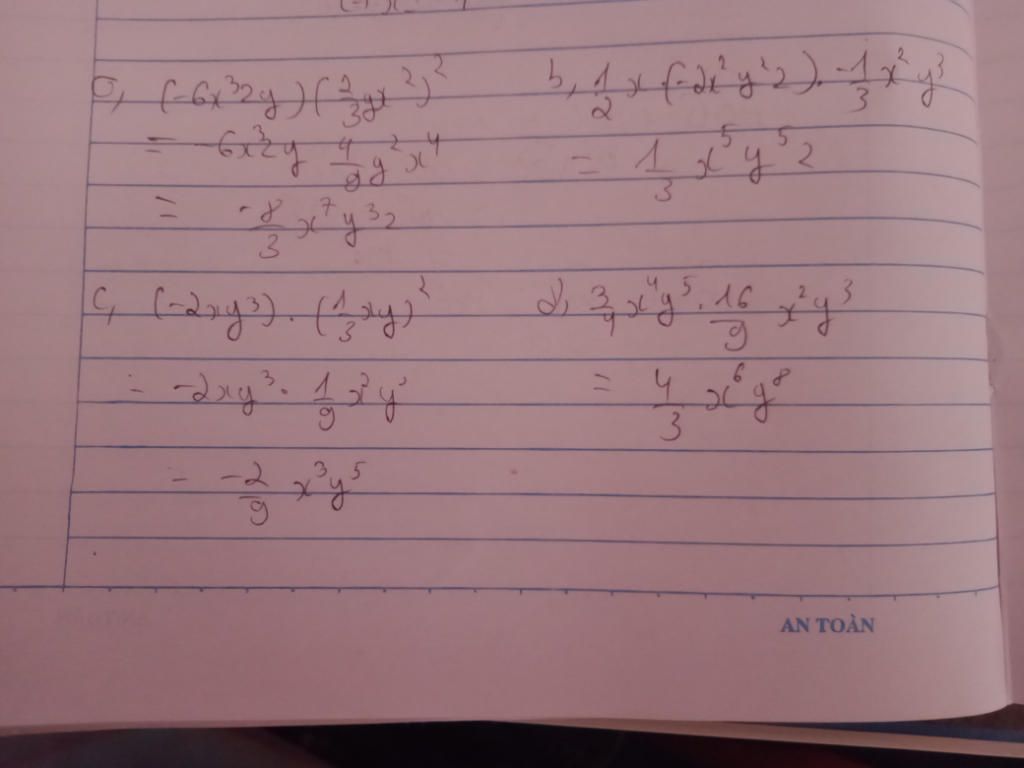 a, (-6x³zy)(2/3yx²)²
= -6x³zy 4/9y²x⁴
= -8/3x⁷y³z
b, 1/2x(-2x²y²z).-1/3x²y³
= 1/3x⁵y⁵z
c, (-2xy³).(1/3xy)²
= -2xy³.1/9x²y²
= -2/9x³y⁵
d, 3/4x⁴y⁵.16/9x²y³
= 4/3x⁶y⁸
AN TOÀN